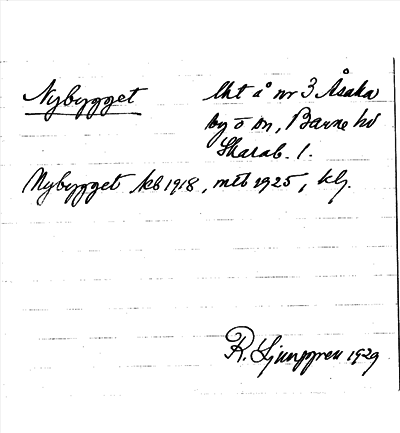 Nybygget
lht å nr 3 Åsaka
by o sn, Barne hd
Skarab. l.
Nybygget kb 1918, mtb 1925, klj.
R. Ljunggren 1929